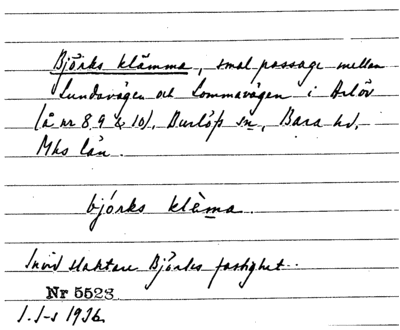 Björks klämma, smal passage mellan
Lundavägen och Lommavägen i Arlöv
(å nr 8 9 & 10), Burlöfs sn, Bara hd,
Mhs län.
björks klèma.
Invid slaktare Björks fastighet.
Nr 5528
I. I-s 1936